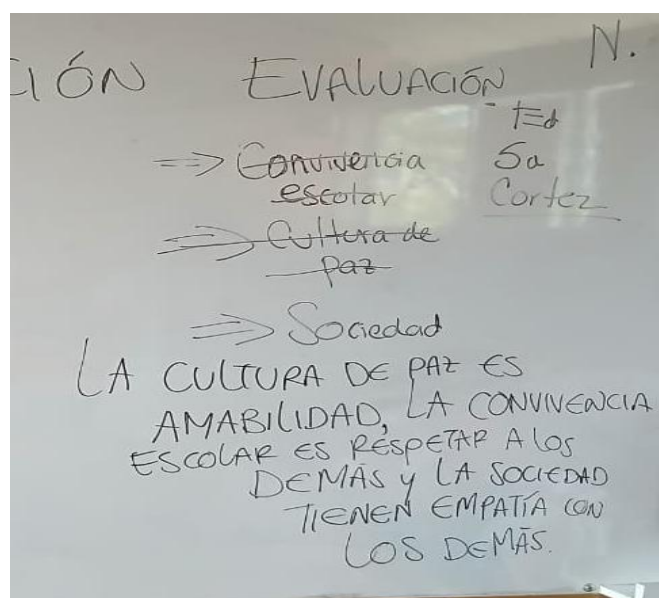 IÓN EVALUACIÓN N.
Ed
⇒ Convivencia 5a
escolar Cortez
⇒ Cultura de
paz
⇒ Sociedad
LA CULTURA DE PAZ ES
AMABILIDAD, LA CONVIVENCIA
ESCOLAR ES RESPETAR A LOS
DEMÁS Y LA SOCIEDAD
TIENEN EMPATÍA CON
LOS DEMÁS.